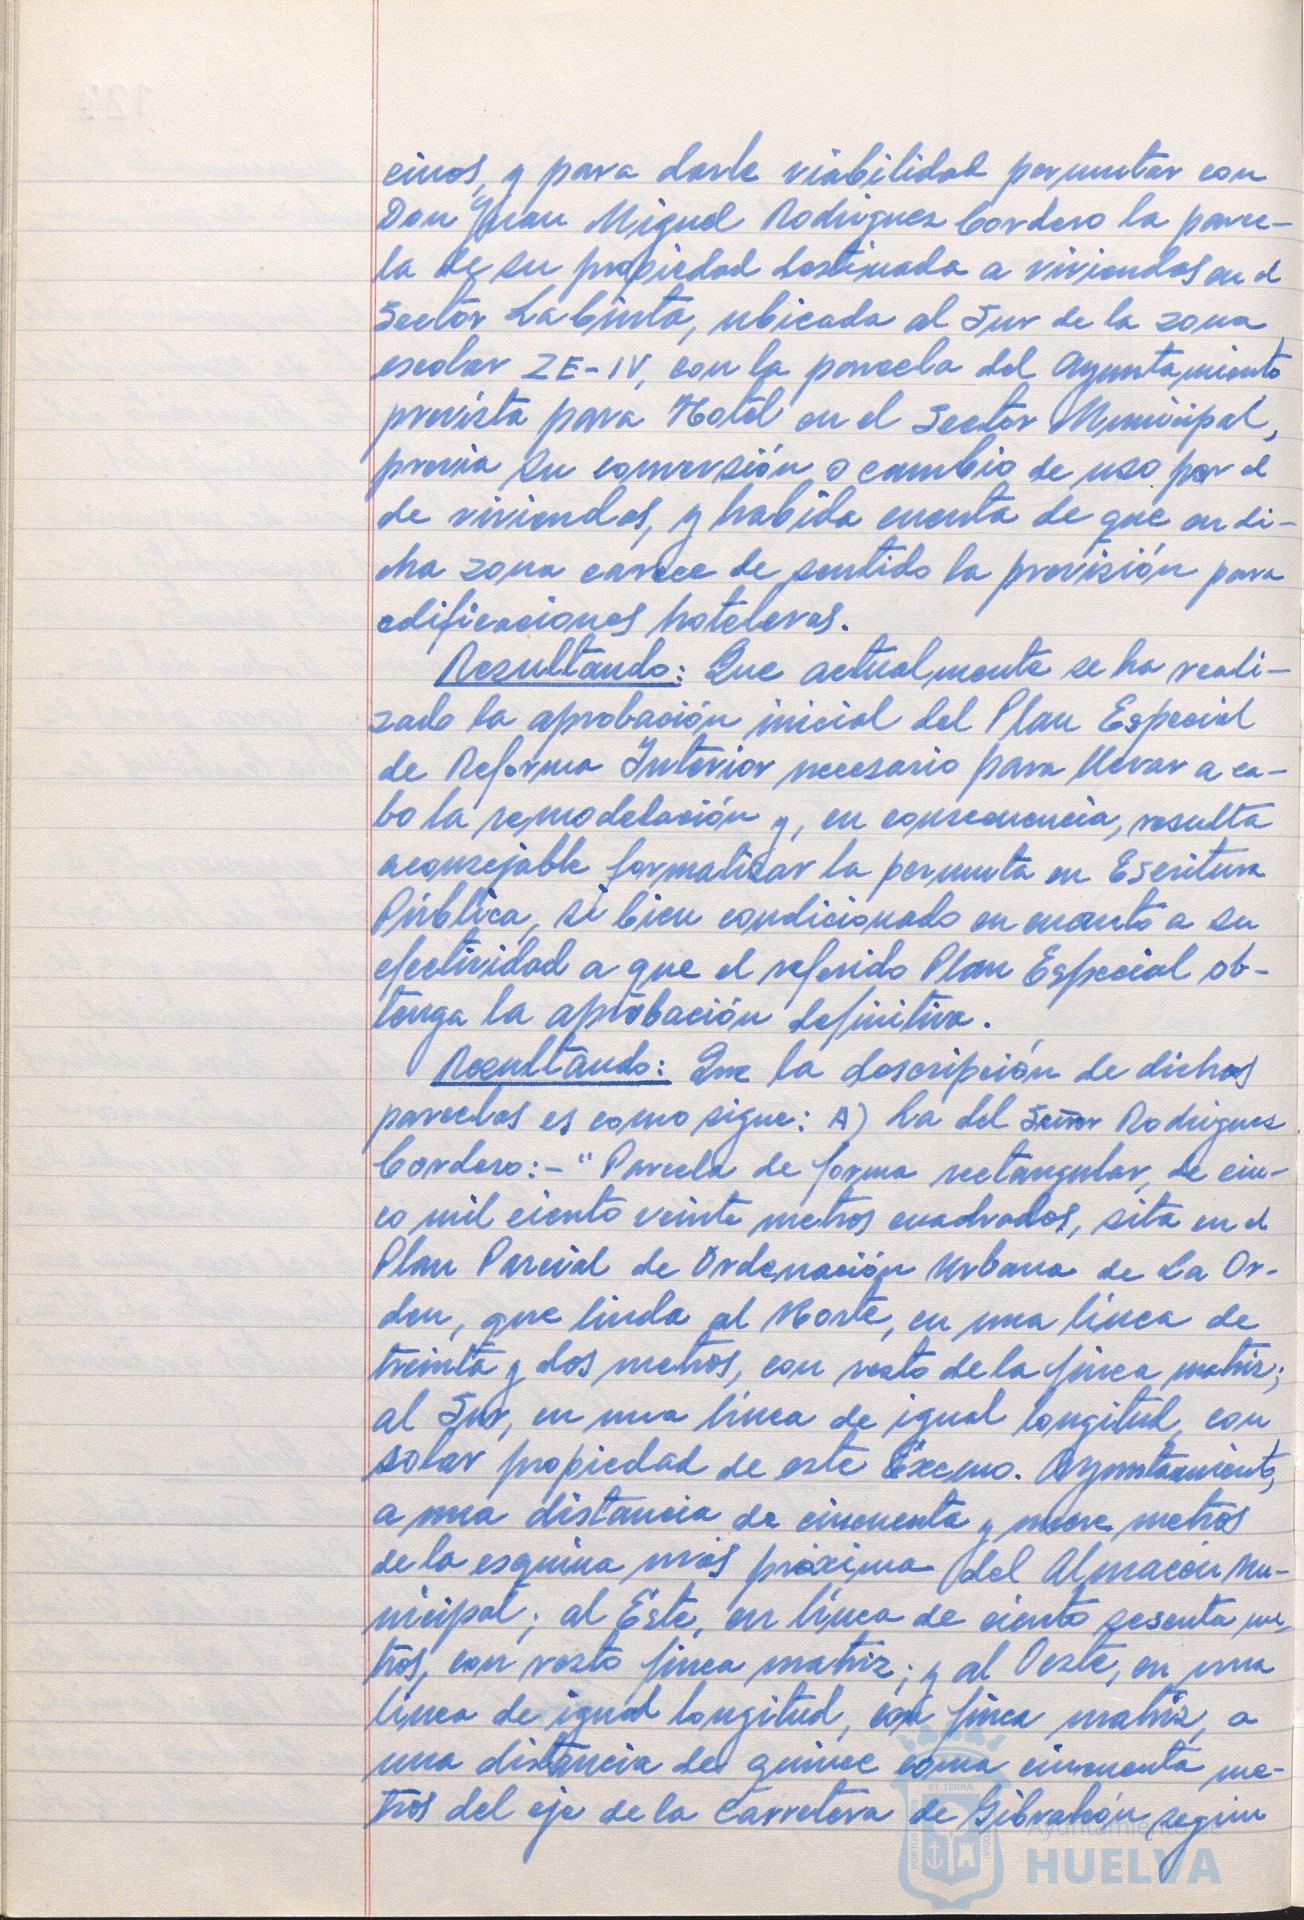 cinos, y para darle viabilidad permutar con
Don Juan Miguel Rodriguez Cordero la parce-
la de su propiedad destinada a viviendas en el
Sector La Cinta, ubicada al Sur de la zona
escolar ZE-IV, con la parcela del Ayuntamiento
prevista para Hotel en el Sector Municipal,
previa su conversión o cambio de uso por el
de viviendas, y habida cuenta de que en di-
cha zona carece de sentido la previsión para
edificaciones hoteleras.
Resultando: Que actualmente se ha reali-
zado la aprobación inicial del Plan Especial
de Reforma Interior necesario para llevar a ca-
bo la remodelación y, en consecuencia, resulta
aconsejable formalizar la permuta en Escritura
Pública, si bien condicionado en cuanto a su
efectividad a que el referido Plan Especial ob-
tenga la aprobación definitiva.
Resultando: Que la descripción de dichas
parcelas es como sigue: A) La del Señor Rodriguez
Cordero:- "Parcela de forma rectangular, de cin-
co mil ciento veinte metros cuadrados, sita en el
Plan Parcial de Ordenación Urbana de La Or-
den, que linda al Norte, en una línea de
treinta y dos metros, con resto de la finca matriz;
al Sur, en una línea de igual longitud, con
solar propiedad de este Excmo. Ayuntamiento,
a una distancia de cincuenta y nueve metros
de la esquina más próxima del Almacén Mu-
nicipal; al Este, en línea de ciento sesenta me-
tros, con resto finca matriz; y al Oeste, en una
línea de igual longitud, con finca matriz, a
una distancia de quince coma cincuenta me-
tros del eje de la Carretera de Gibraleón, según
ET TERRÆ
PORTUS
CUSTODIA
Ayuntamiento de
HUELVA